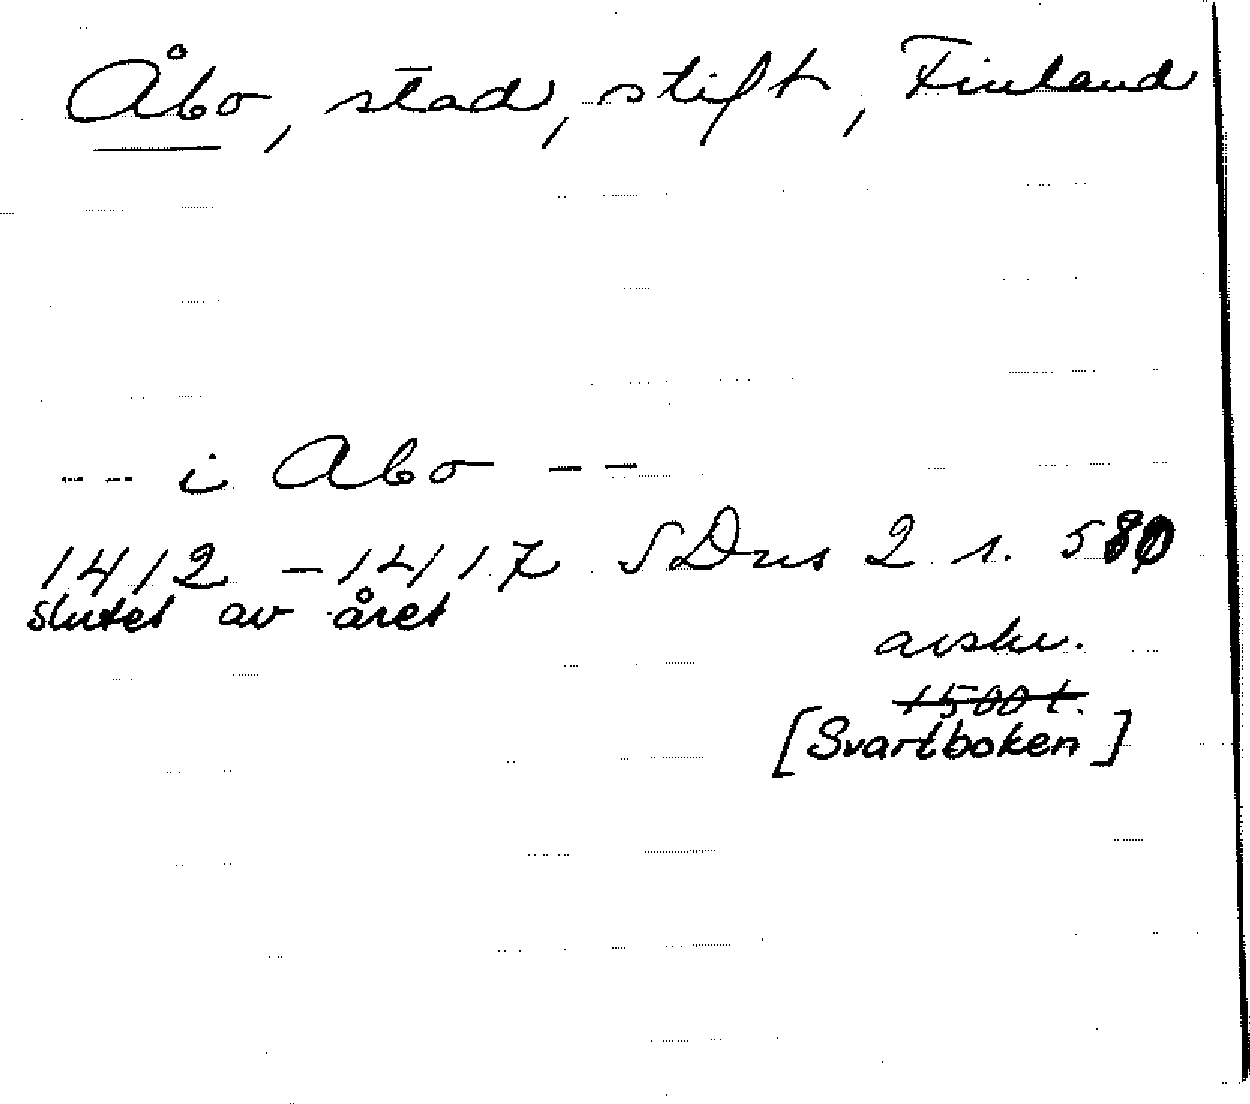 Åbo, stad, stift, Finland
-- i Abo --
1412 - 1417 SDns 2 s. 580
slutet av året
avskr.
1500 t.
[Svartboken]